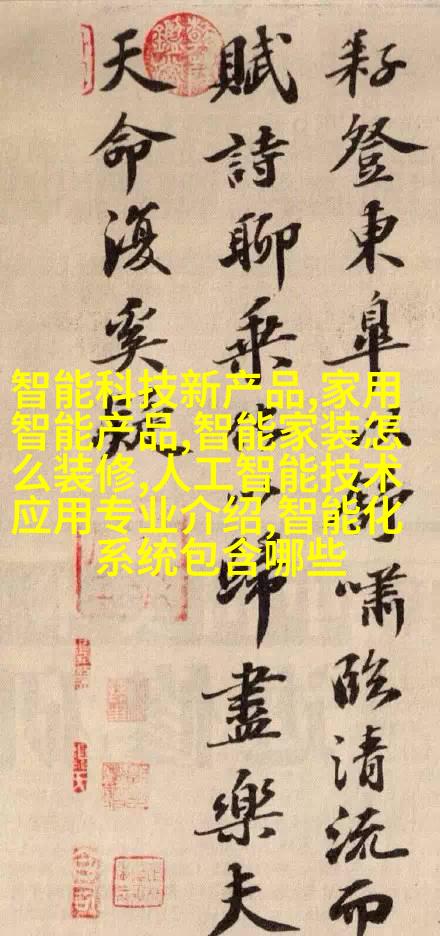 耔登東皐以舒嘯臨清流而
賦詩聊乘化以歸盡樂夫
天命復奚疑
智能科技新产品,家用
智能产品,智能家装怎
么装修,人工智能技术
应用专业介绍,智能化
系统包含哪些